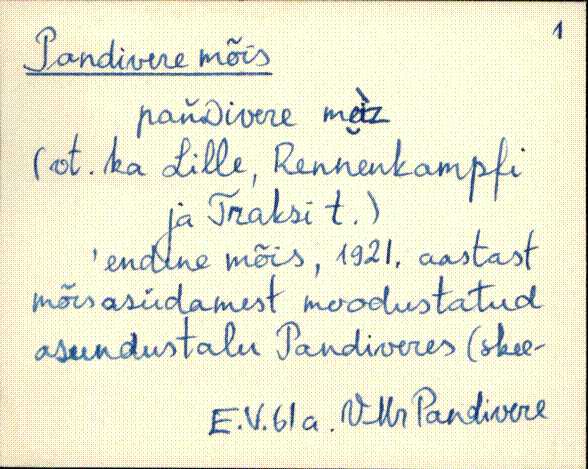 1
Pandivere mõis
pańDivere mèiz
(ot. ka Lille, Rennenkampfi
ja Traksi t.)
'endine mõis, 1921. aastast
mõisasüdamest moodustatud
asundustalu Pandiveres (skee-
E.V. 61a. V-Mr Pandivere